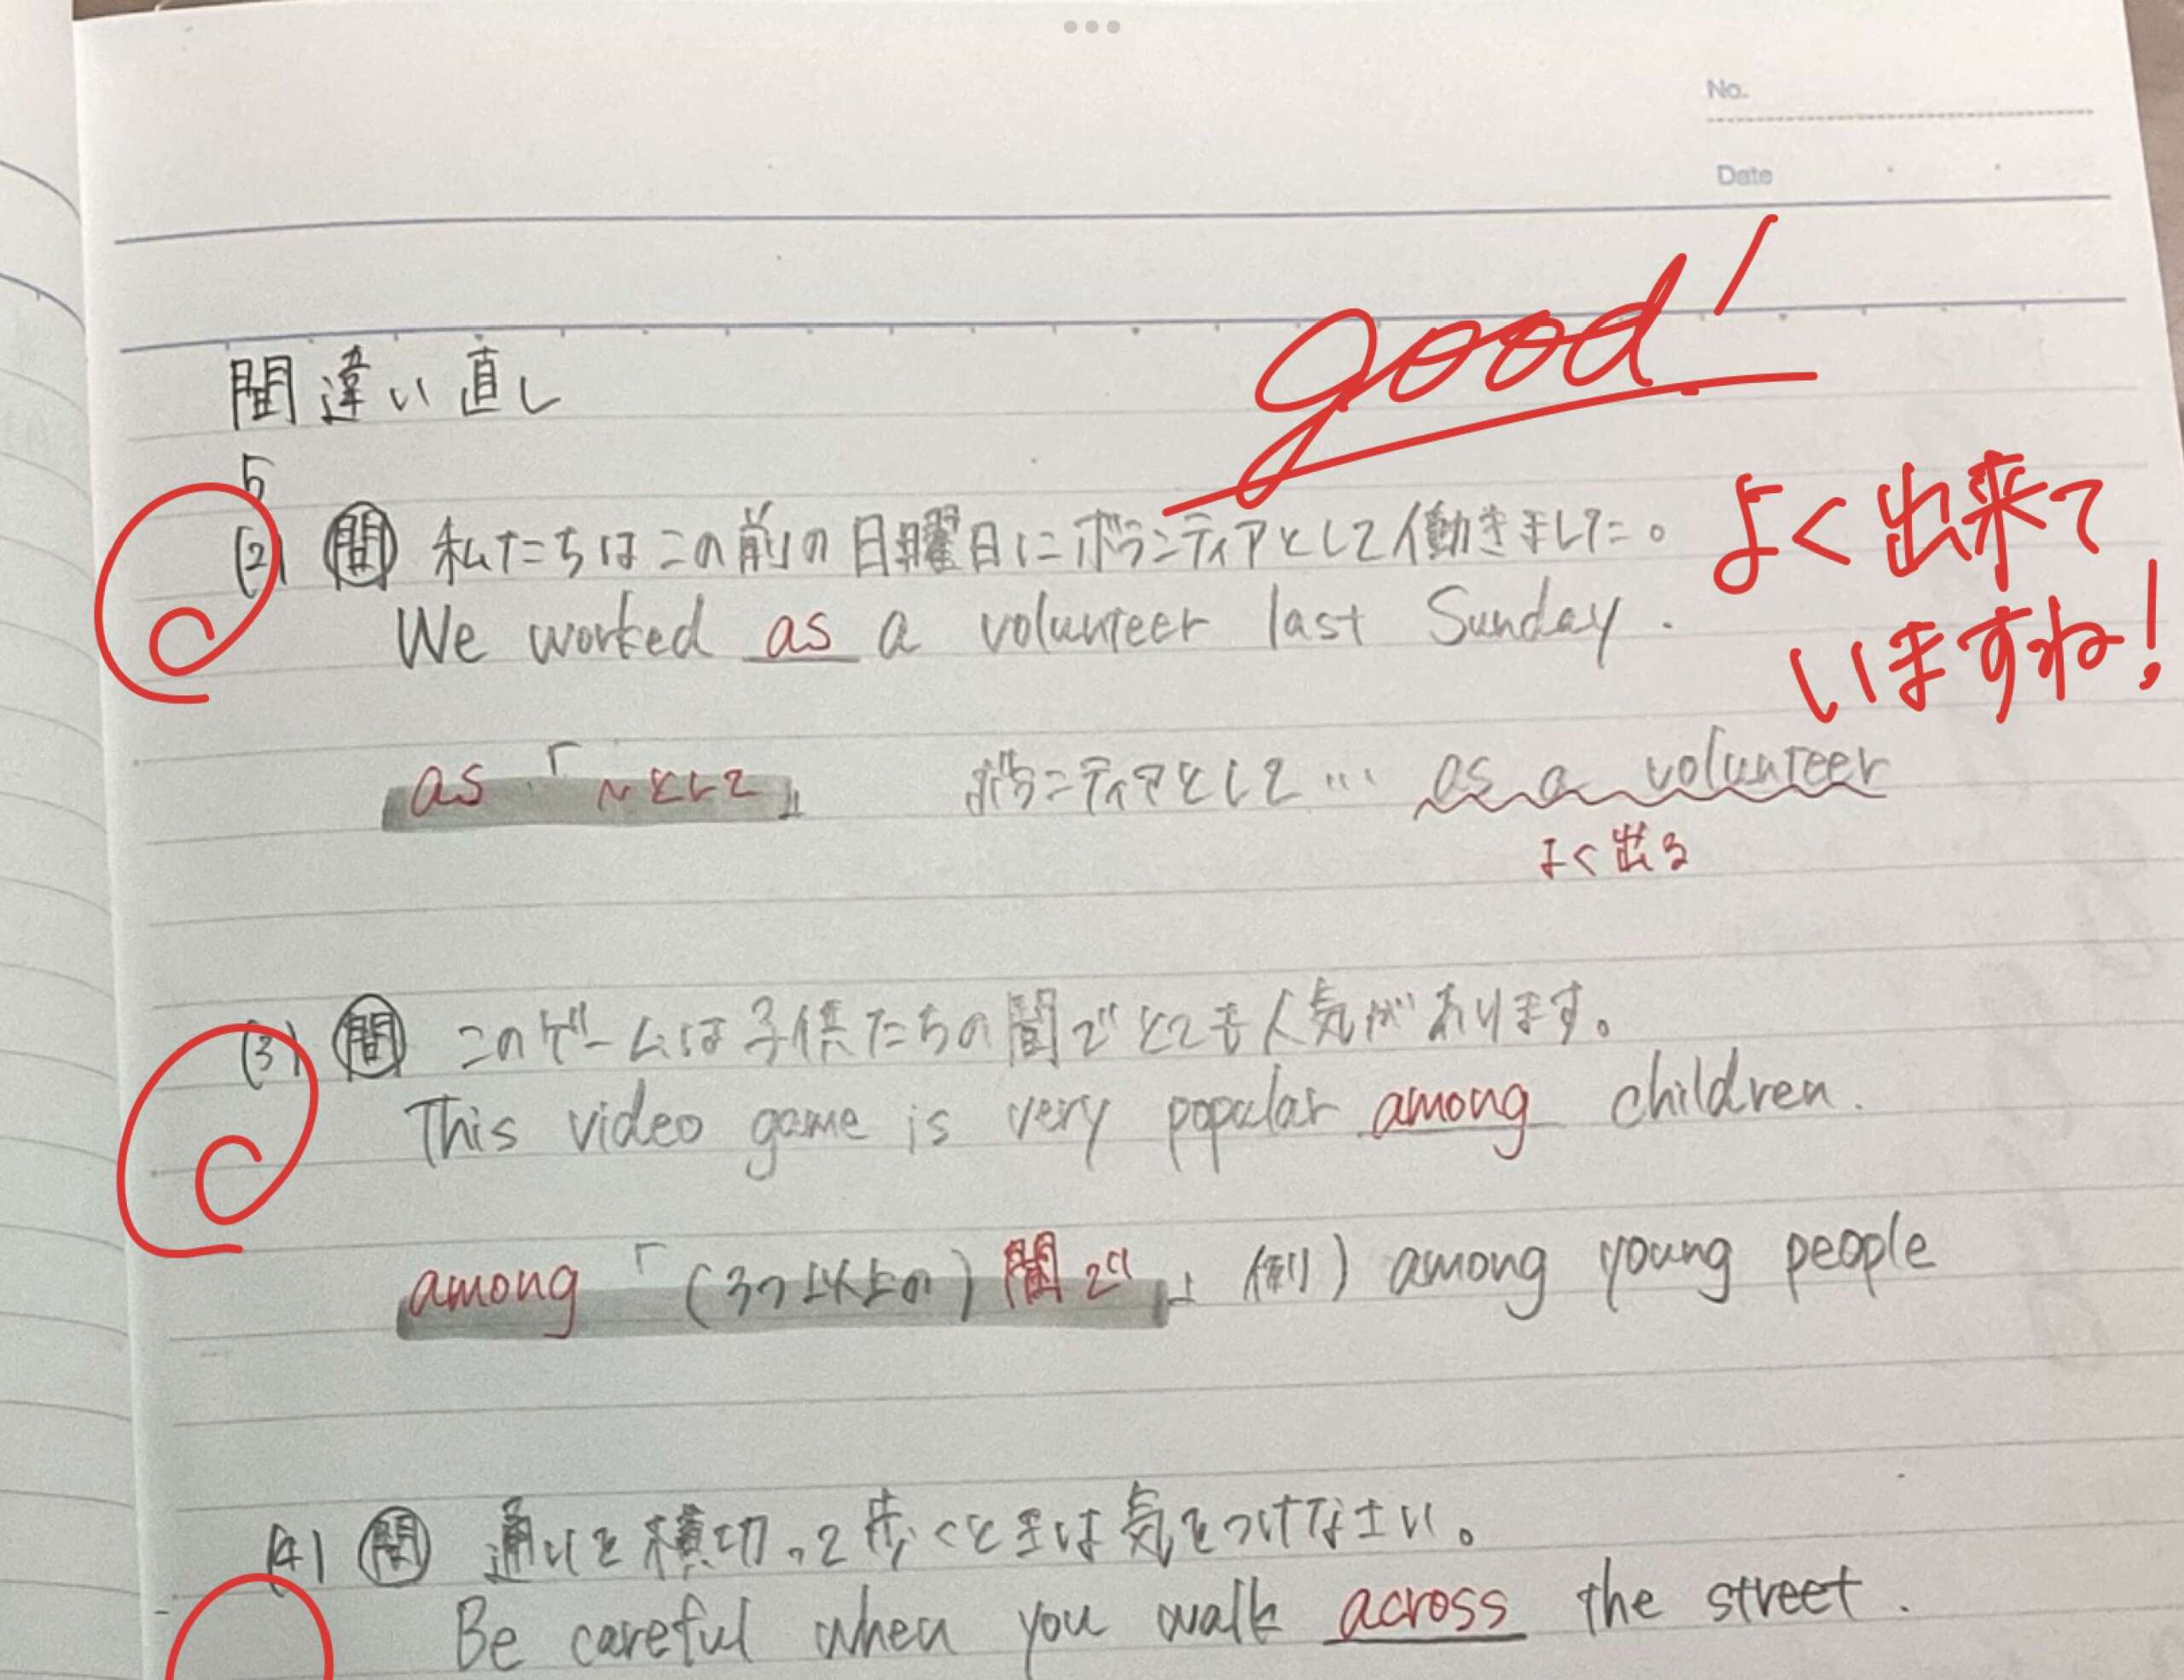 No.
Date
good!
間違い直し
5
(2) 問 私たちはこの前の日曜日にボランティアとして働きました。
よく出来て
いますね!
We worked as a volunteer last Sunday.
as「〜として」 ボランティアとして… as a volunteer
よく出る
(3) 問 このゲームは子供たちの間でとても人気があります。
This video game is very popular among children.
among「(3つ以上の)間で」 例) among young people
(4) 問 通りを横切って歩くときは気をつけなさい。
Be careful when you walk across the street.